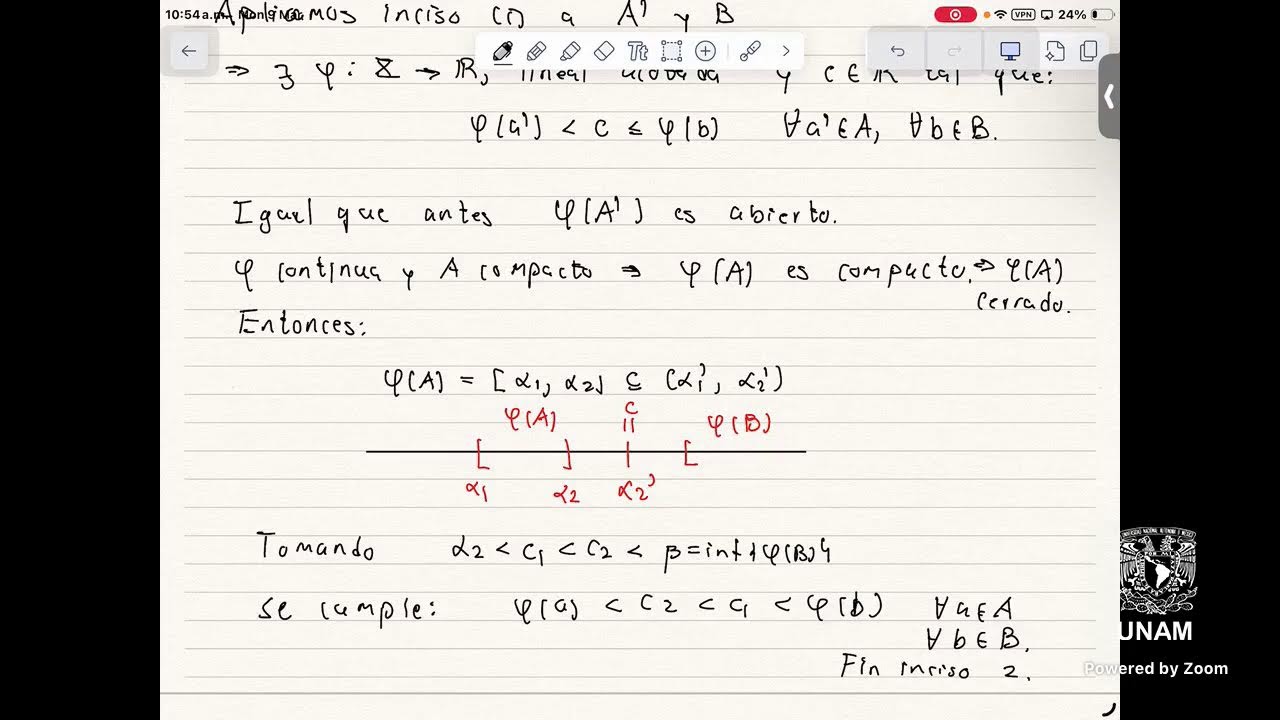 10:54 a.m. Mon 9 Mar
VPN 24%
Aplicamos inciso (1) a A' y B
⇒ ∃ φ: Z → ℝ, lineal acotada y c ∈ ℝ tal que:
φ(a') < c ≤ φ(b) ∀a' ∈ A, ∀b ∈ B.
Igual que antes φ(A') es abierto.
φ continua y A compacto ⇒ φ(A) es compacto. ⇒ φ(A)
cerrado.
Entonces:
φ(A) = [α₁, α₂] ⊆ (α₁', α₂')
φ(A) c φ(B)
α₁ α₂ α₂'
Tomando α₂ < c₁ < c₂ < β = inf{φ(B)}
se cumple: φ(a) < c₂ < c₁ < φ(b) ∀a ∈ A
∀b ∈ B.
Fin inciso 2.
UNAM
Powered by Zoom